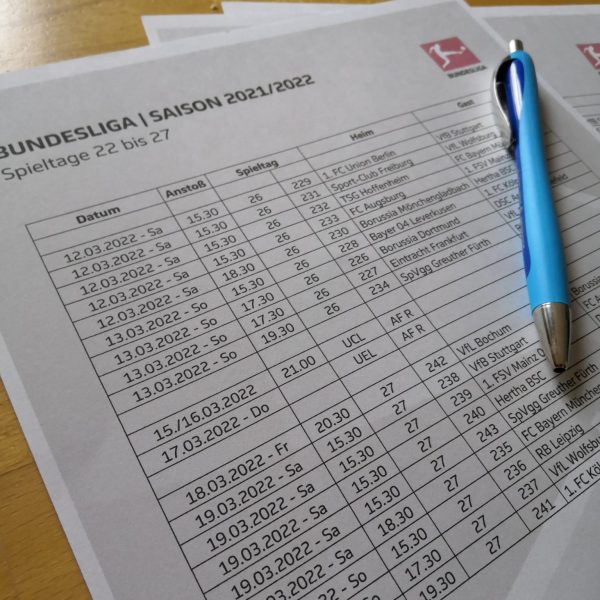 BUNDESLIGA | SAISON 2021/2022
Spieltage 22 bis 27
BUNDESLIGA
Datum Anstoß Spieltag Heim Gast
12.03.2022 - Sa 15.30 26 229 1. FC Union Berlin VfB Stuttgart
12.03.2022 - Sa 15.30 26 231 Sport-Club Freiburg VfL Wolfsburg
12.03.2022 - Sa 15.30 26 232 TSG Hoffenheim FC Bayern
12.03.2022 - Sa 15.30 26 233 FC Augsburg 1. FSV Mainz
12.03.2022 - Sa 18.30 26 230 Borussia Mönchengladbach Hertha BSC
13.03.2022 - So 15.30 26 228 Bayer 04 Leverkusen 1. FC
13.03.2022 - So 17.30 26 226 Borussia Dortmund DSC
13.03.2022 - So 19.30 26 227 Eintracht Frankfurt
234 SpVgg Greuther Fürth
15./16.03.2022 21.00 UCL AF R
17.03.2022 - Do UEL AF R
18.03.2022 - Fr 20.30 27 242 VfL Bochum
19.03.2022 - Sa 15.30 27 238 VfB Stuttgart
19.03.2022 - Sa 15.30 27 239 1. FSV Mainz
19.03.2022 - Sa 15.30 27 240 Hertha BSC
19.03.2022 - Sa 15.30 27 243 SpVgg Greuther Fürth
2022 - Sa 18.30 27 235 FC Bayern
2022 - So 15.30 27 236 RB Leipzig
17.30 27 237 VfL
19.30 27 241 1. FC